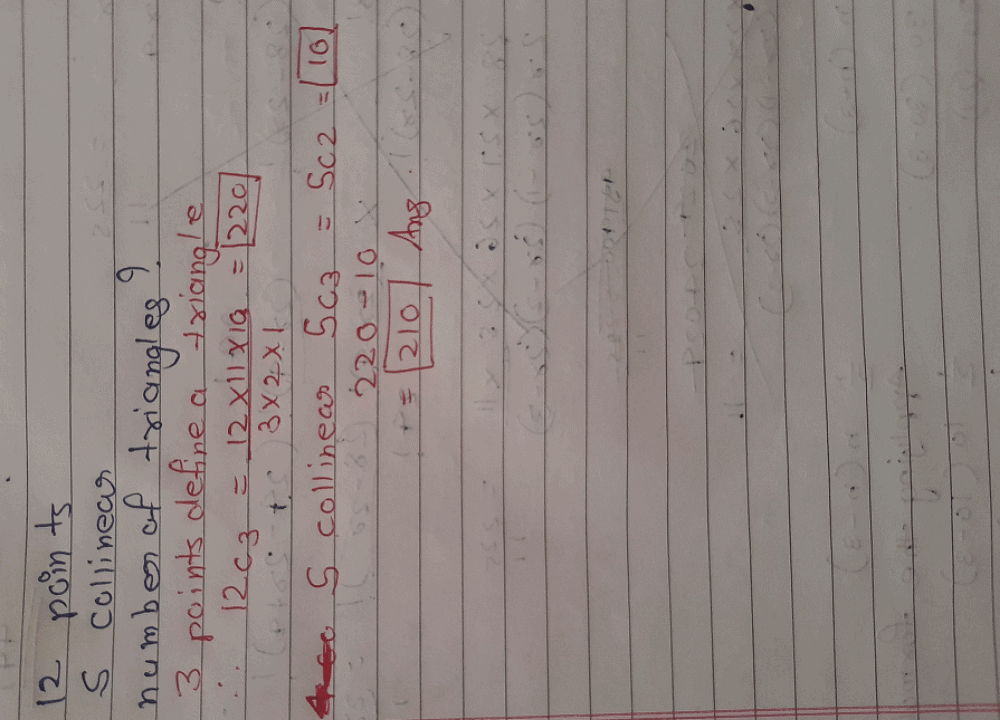 12 points
5 collinear
number of triangles ?
3 points define a triangle
∴ 12C3 = 12 x 11 x 10 / 3 x 2 x 1 = 220
5 collinear 5C3 = 5C2 = 10
220 - 10
= 210 Ans